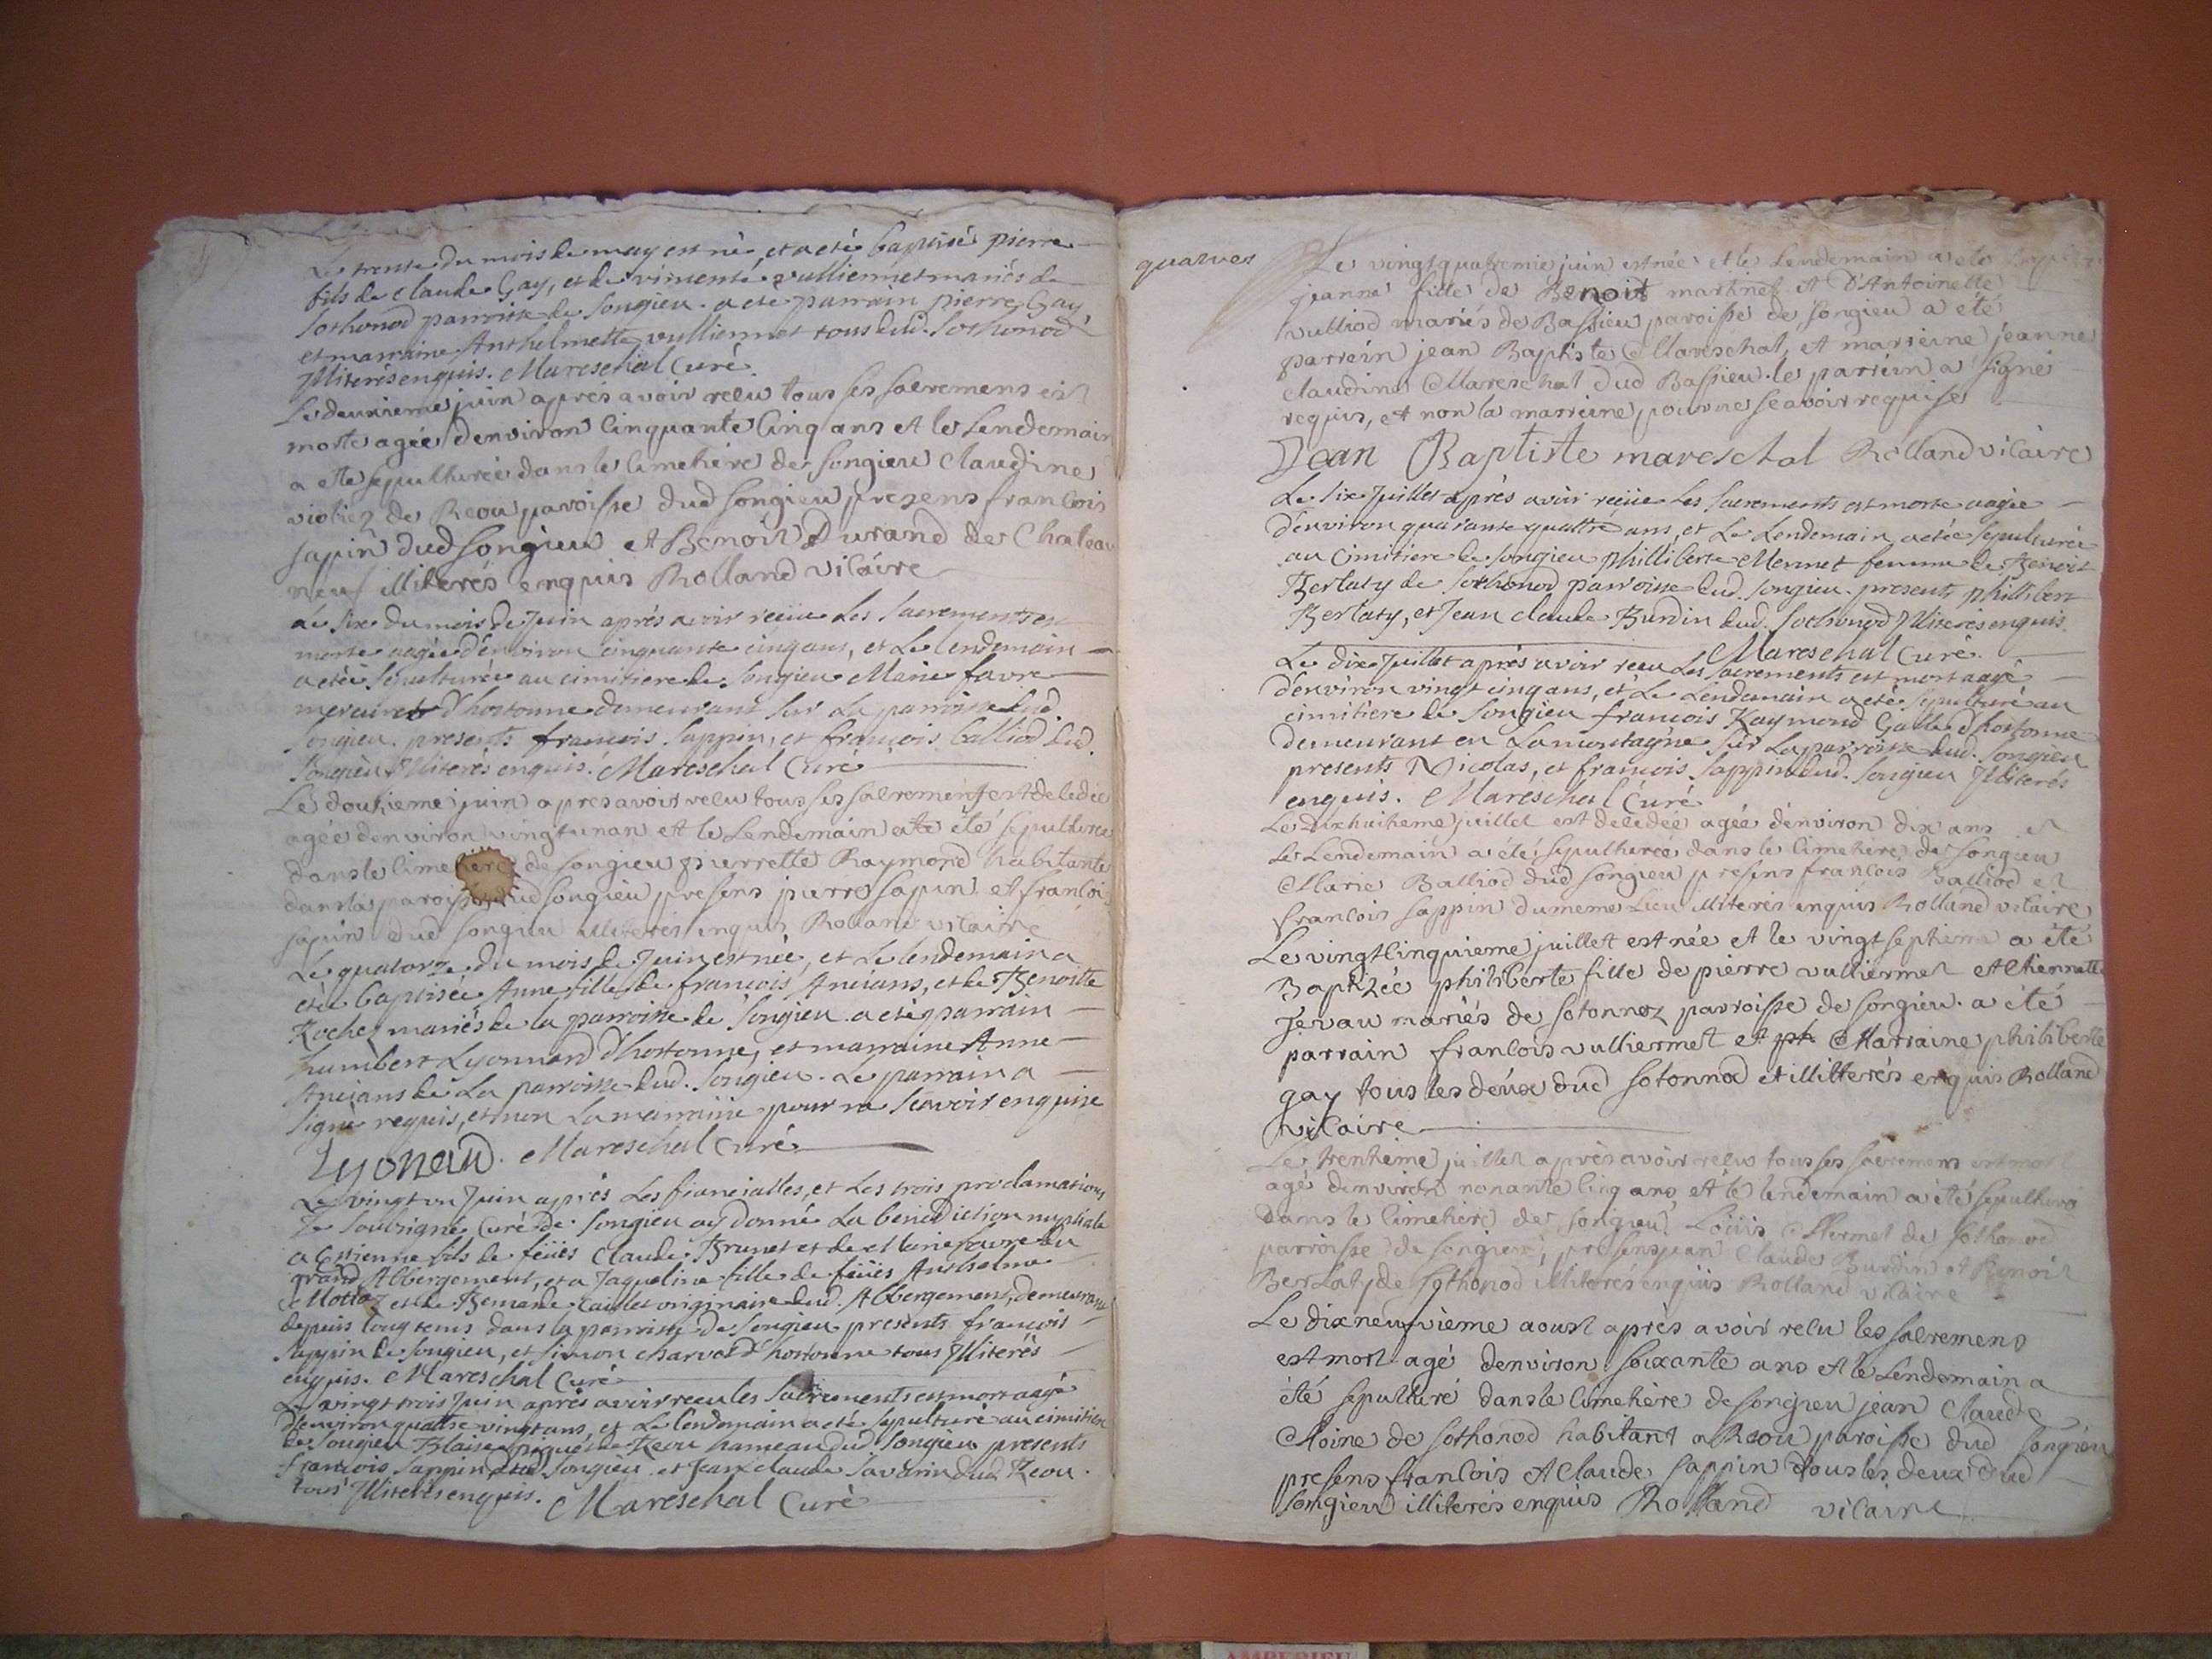 Le trente du mois de may est né, et a eté baptisé pierre
fils de claude Gay, et de vimenté vulliermet mariés de
Sothonod parroisse de Songieu. a eté parrain pierre Gay,
et marraine Anthelmette vulliermet tous dud. Sothonod
Illiterés enquis. Mareschal Curé.
Le deuxieme juin aprés avoir recu tous ses sacremens est
morte agée denviron cinquante cinq ans et le Lendemain
a ete sepulturée dans le cimetiere de Songieu Claudine
de Reou paroisse dud Songieu presens francois
sapin dud Songieu et Benoit Durand de Chateau
neuf illiterés enquis Rolland vicaire
Le six du mois de Juin aprés avoir reciie Les Sacrements est
morte aagée d'environ cinquante cinq ans, et Le lendemain
a etée Sepulturée au cimitiere de Songieu Marie favre
d'hostonne demeurant sur La parroisse dud.
Songieu. presents francois Sappin, et francois balliod dud.
Songieu Illiterés enquis. Mareschal Curé
Le douzieme juin apres avoir recu tous ses sacremens est decedée
agée denviron vingt un an et le Lendemain a été sepulturée
dans le cimetiere de Songieu pierrette Raymond habitante
dans la paroisse dud Songieu presens pierre sapin et francois
sapin dud Songieu illiterés enquis Rolland vicaire
Le quatorze du mois de Juin est née, et Le lendemain a
etée baptisée Anne fille de francois Ancians, et de Benoite
Rochez mariés de la parroisse de Songieu a eté parrain
humbert Lyonnard d'hostonne, et marraine Anne
Ancians de La parroisse dud. Songieu. Le parrain a
Signé requis, et non La marraine pour ne Scavoir enquise
Lyonard. Mareschal Curé
Le vingt un Juin aprés Les fiancialles, et Les trois proclamations
Je Soubsigné Curé de Songieu ay donné La benediction nuptiale
a Estienne fils de feües Claude Brunet et de Marie favre du
grand Albergement, et a Jaqueline fille de feües Anthelme
Mottaz et de Bernarde Caillet originaire dud. Albergement, demeurant
depuis long tems dans la parroisse de Songieu presents francois
Sappin de Songieu, et Simon charvet d'hostonne tous Illiterés
enquis. Mareschal Curé
Le vingt trois Juin aprés avoir receu les Sacrements est mort aagé
D'environ quattre vingt ans, et Le lendemain a eté sepulturé au cimitiere
de Songieu Blaise de Reou hameau dud. Songieu presents
francois Sappin dud Songieu et Jean claude Savarin dud Reou.
tous Illiterés enquis. Mareschal Curé
Le vingt quatremie juin est née et le Lendemain a ete
jeanne fille de Benoit martinet et D'Antoinette
vulliod mariés de Bassieu paroisse de Songieu a été
parrein jean Baptiste Mareschal, et marreine jeanne
claudine Mareschal dud Bassieu. le parrein a signé
requis, et non la marreine pour ne scavoir requise
Jean Baptiste mareschal Rolland vicaire
Le Six Juillet aprés avoir reciie Les Sacrements est morte aagée
d'environ quarante quattre ans, et Le Lendemain a etée Sepulturée
au Cimitiere de Songieu Philliberte Mermet femme de Benoit
Berlaty de Sothonod parroisse dud. Songieu. presents Phillibert
Berlaty, et Jean claude Burdin dud. Sothonod Illiterés enquis.
Mareschal Curé.
Le dix Juillet aprés avoir receu Les Sacrements est mort aagé
d'environ vingt cinq ans, et Le Lendemain a eté sepulturé au
cimitiere de Songieu francois Raymond Galle d'hostonne
demeurant en La montagne Sur La parroisse dud. Songieu
presents Nicolas, et francois Sappin dud. Songieu Illiterés
enquis. Mareschal Curé
Le Dix huitieme juillet est decedée agée d'environ dix ans et
le Lendemain a été sepulturée dans le cimetiere de Songieu
Marie Balliod dud Songieu presens francois Balliod et
francois sappin du meme Lieu illiterés enquis Rolland vicaire
Le vingt cinquieme juillet est née et le vingt septieme a été
Baptizée philiberte fille de pierre vulliermet et Etiennette
Jevau mariés de sotonnoz parroisse de songieu. a été
parrain francois vulliermet et ph Marraine philiberte
gay tous les deux dud sotonnod et illitterés enquis Rolland
vicaire
Le trentieme juillet aprés avoir recus tous ses sacremens est mort
agé denviron nonante cinq ans et le lendemain a été sepulturé
dans le cimetiere de Songieu Loüis Mermet de Sothonod
parroisse de songieu, presens jean Claude Burdin et Benoit
Berlaty de Sothonod illiterés enquis Rolland vicaire
Le dix neufvième aoust après avoir recu les sacremens
est mort agé denviron soixante ans et le Lendemain a
été sepulturé dans le cimetière de Songieu jean Claude
Moine de sothonod habitant a Reou paroisse dud Songieu
presens francois et Claude sappin tous les deux dud
Songieu illiterés enquis Rolland vicaire